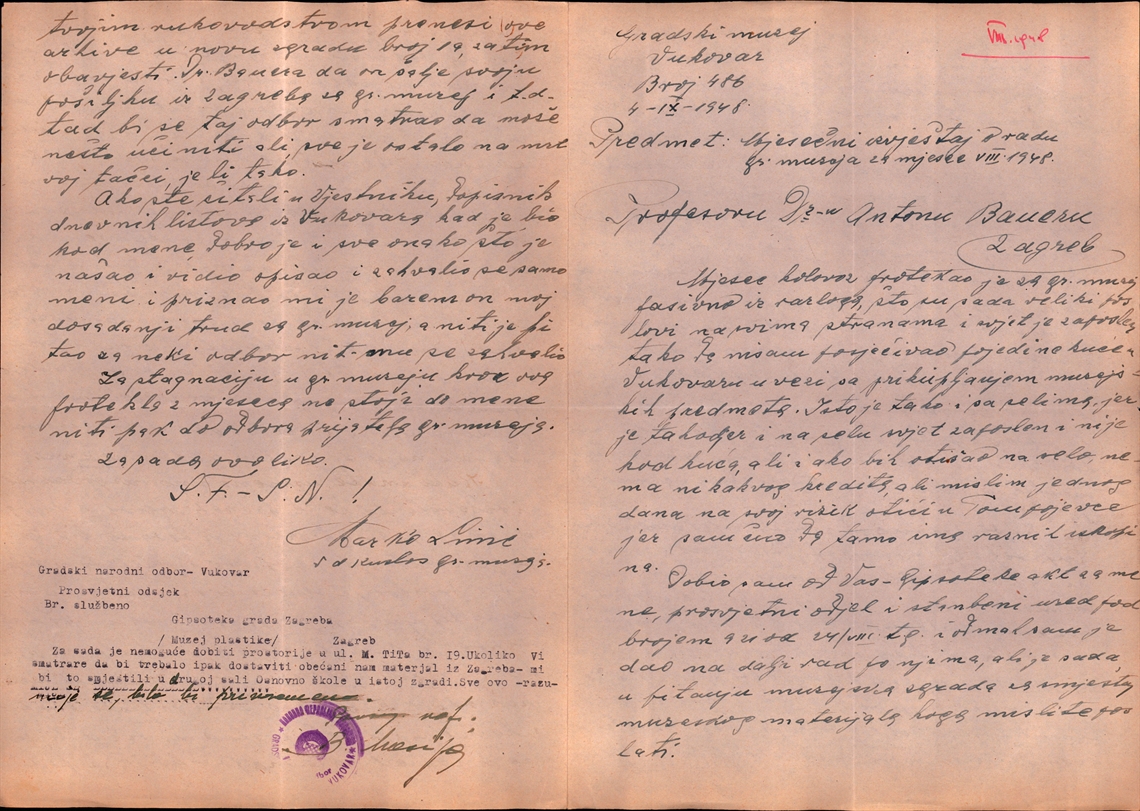 tvojim rukovodstvom prenesi ove
arhive u novu zgradu broj 19, zatim
obavjesti Dr. Bauera da on šalje svoju
pošiljku iz Zagreba za gr. muzej i t.d.
tad bi se taj odbor smatrao da može
nešto učiniti ali sve je ostalo na mrt
voj tački, je li tako.
Ako ste čitali u Vjestniku, Dopisnik
dnevnih listova iz Vukovara kad je bio
kod mene Dobro je i sve onako što je
našao i vidio opisao i zahvalio se samo
meni i priznao mi je barem on moj
dosadanji trud za gr. muzej, a niti je pi
tao za neki odbor nit mu se zahvalio
Za stagnaciju u gr. muzeju kroz ova
protekla 2 mjeseca ne stoji do mene
niti pak do odbora prijatelja gr. muzeja.
Za sada ovoliko.
S. F. – S. N. !
Marko Linić
gr. muzeja.
Gradski narodni odbor- Vukovar
Prosvjetni odsjek
Br. službeno
Gipsoteka grada Zagreba
/ Muzej plastike/ Zagreb
Za sada je nemoguće dobiti prostorije u ul. M. TiTa br. I9.Ukoliko Vi
smatrare da bi trebalo ipak dostaviti obećani nam materjal iz Zagreba- mi
bi to smjestili u drugoj sali Osnovno škole u istoj zgradi.Sve ovo -razu-
mije se, bilo bi privremeno.
VUKOVAR
Gradski muzej
Vukovar
Broj 486
4-IX-1948.
VIII. 1948
Predmet: Mjesečni izvještaj o radu
gr. muzeja za mjesec VIII. 1948.
Profesoru Dr-u Antonu Baueru
Zagreb
Mjesec kolovoz protekao je za gr. muzej
pasivno iz razloga, što su sada veliki pos
lovi na svima stranama i svjet je zaposlen
tako da nisam posjećivao pojedine kuće u
Vukovaru u vezi sa prikupljanjem muzejs
kih predmeta. Isto je tako i sa selima, jer
je također i na selu svjet zaposlen i nije
kod kuća, ali i ako bih otišao na selo, ne-
ma nikakvog kredita, ali mislim jednog
dana na svoj rizik otići u Tompojevce
jer sam čuo da tamo ima raznih iskopi
na.
Dobio sam od Vas-Gipsoteke akt za me
ne, prosvjetni odjel i stanbeni ured pod
brojem 421 od 24/VIII. t.g. i odmah sam je
dao na dalji rad po njima, ali je sada,
u pitanju muzejska zgrada za smještaj
muzeskog materijala koga mislite pos
lati.